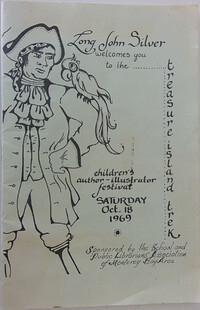 Long John Silver
welcomes you
to the ........
treasure island trek
children's
author-illustrator
festival
SATURDAY
Oct. 18
1969
Sponsored by the School and
Public Librarians Association
of Monterey Bay Area